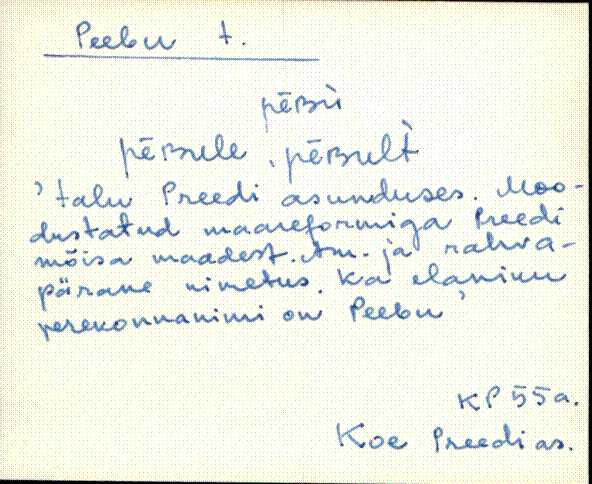 Peebu t.
pēʙù
pēʙule, pēʙult̀
'talu Preedi asunduses. Moo-
dustatud maareformiga Preedi
mõisa maadest. Am. ja rahva-
pärane nimetus. Ka elaniku
perekonnanimi on Peebu'
KP 55a.
Koe Preedi as.